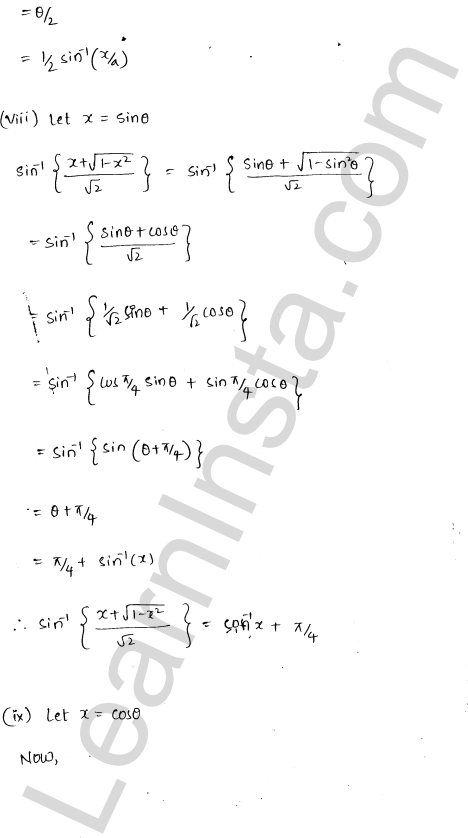 = θ/2
= 1/2 sin⁻¹(x/a)
(viii) Let x = sinθ
sin⁻¹ { (x+√(1-x²))/√2 } = sin⁻¹ { (sinθ + √(1-sin²θ))/√2 }
= sin⁻¹ { (sinθ + cosθ)/√2 }
= sin⁻¹ { 1/√2 sinθ + 1/√2 cosθ }
= sin⁻¹ { cos π/4 sinθ + sin π/4 cosθ }
= sin⁻¹ { sin (θ+π/4) }
= θ + π/4
= π/4 + sin⁻¹(x)
∴ sin⁻¹ { (x+√(1-x²))/√2 } = sin⁻¹x + π/4
(ix) Let x = cosθ
Now,
LearnInsta.com